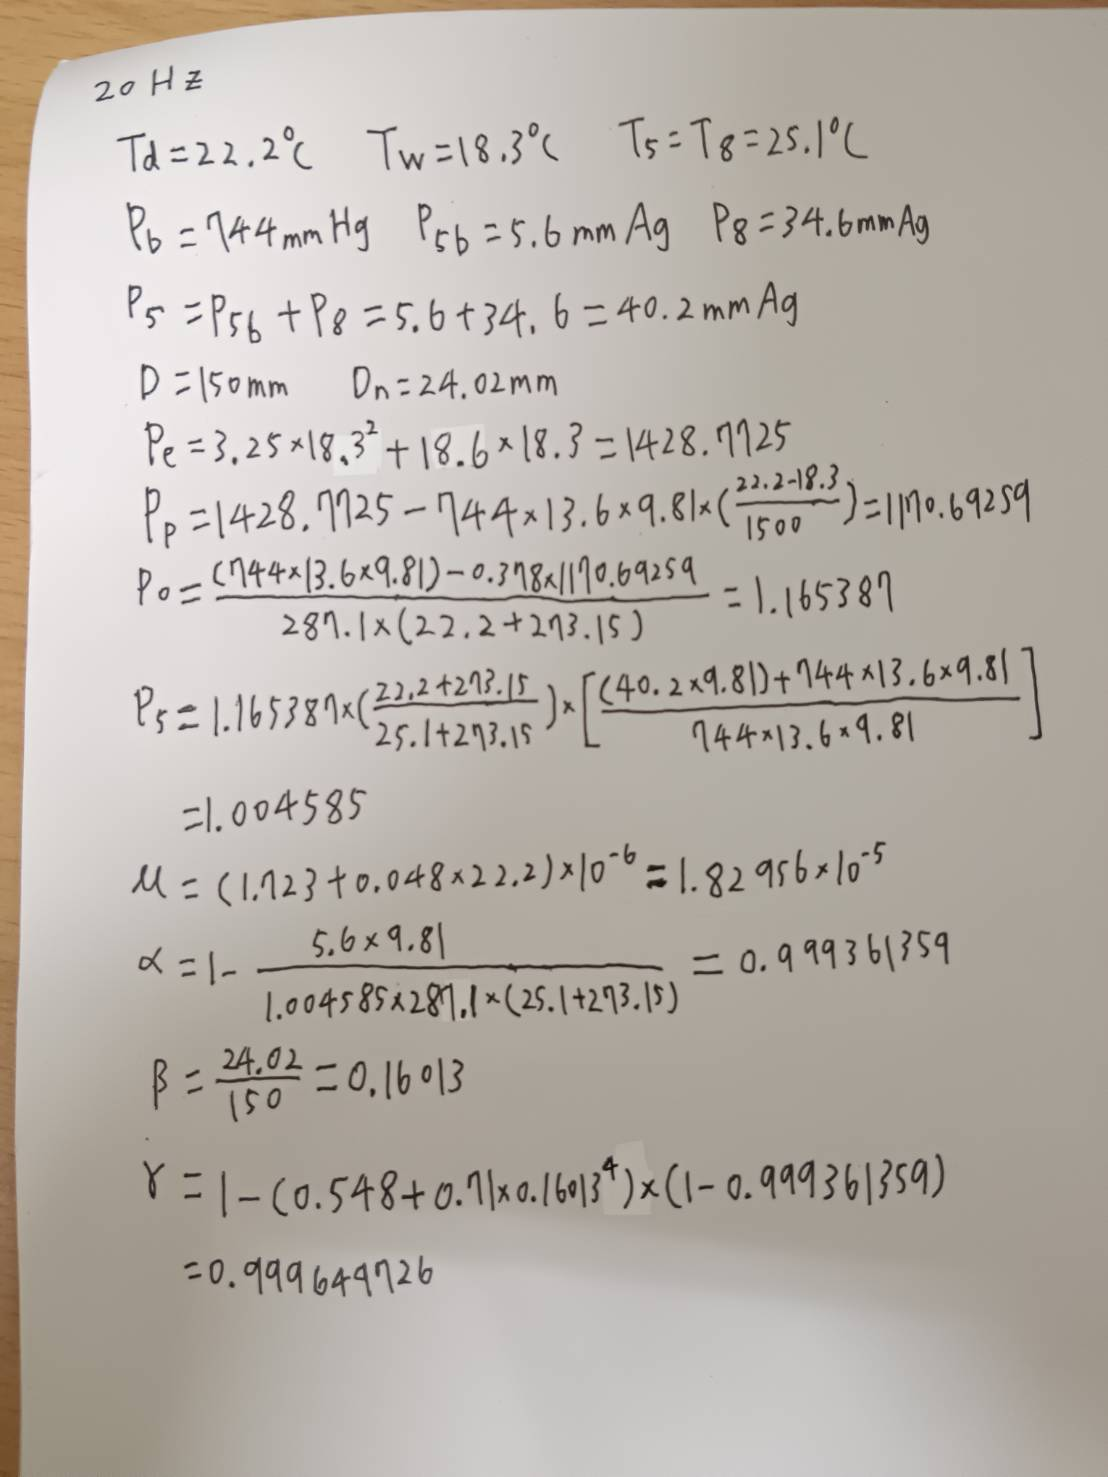 20 Hz
Td=22.2℃ Tw=18.3℃ T5=T8=25.1℃
Pb=744mmHg P5b=5.6mmAg P8=34.6mmAg
P5=P5b+P8=5.6+34.6=40.2mmAg
D=150mm Dn=24.02mm
Pe=3.25×18.3²+18.6×18.3=1428.7725
Pp=1428.7725-744×13.6×9.81×(22.2-18.3/1500)=1170.69259
P0=(744×13.6×9.81)-0.378×1170.69259/287.1×(22.2+273.15)=1.165387
P5=1.165387×(22.2+273.15/25.1+273.15)×[(40.2×9.81)+744×13.6×9.81/744×13.6×9.81]
=1.004585
μ=(1.723+0.048×22.2)×10⁻⁶=1.82956×10⁻⁵
α=1-5.6×9.81/1.004585×287.1×(25.1+273.15)=0.999361359
β=24.02/150=0.16013
γ=1-(0.548+0.71×0.16013⁴)×(1-0.999361359)
=0.999649726